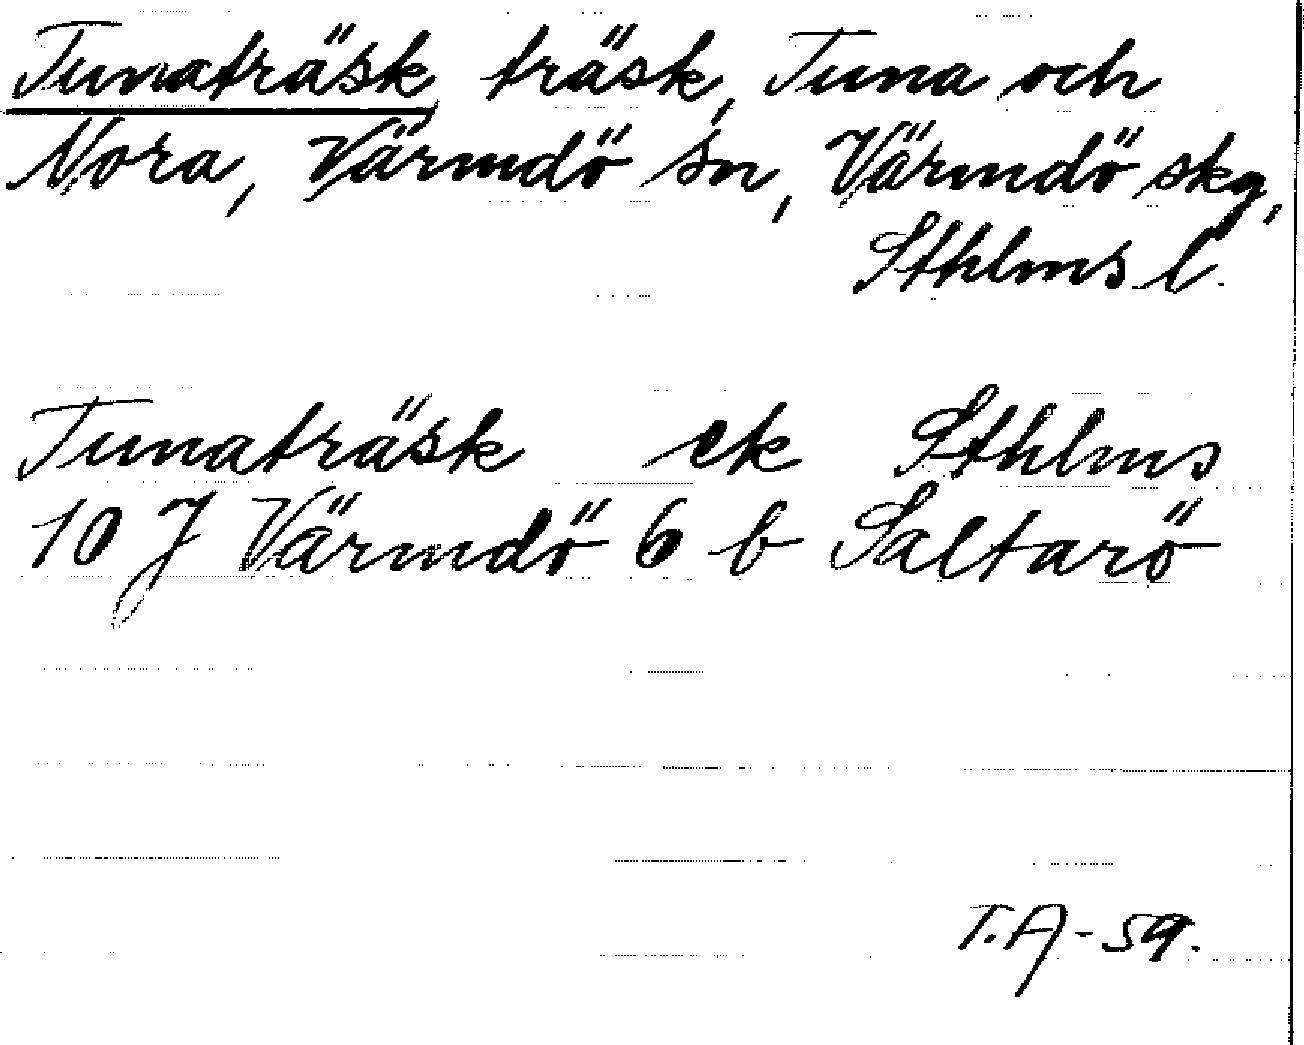 Tunaträsk träsk, Tuna och
Nora, Värmdö sn, Värmdö skg,
Sthlms l.
Tunaträsk ek Sthlms
10 J Värmdö 6 b Saltarö
T.A-59.